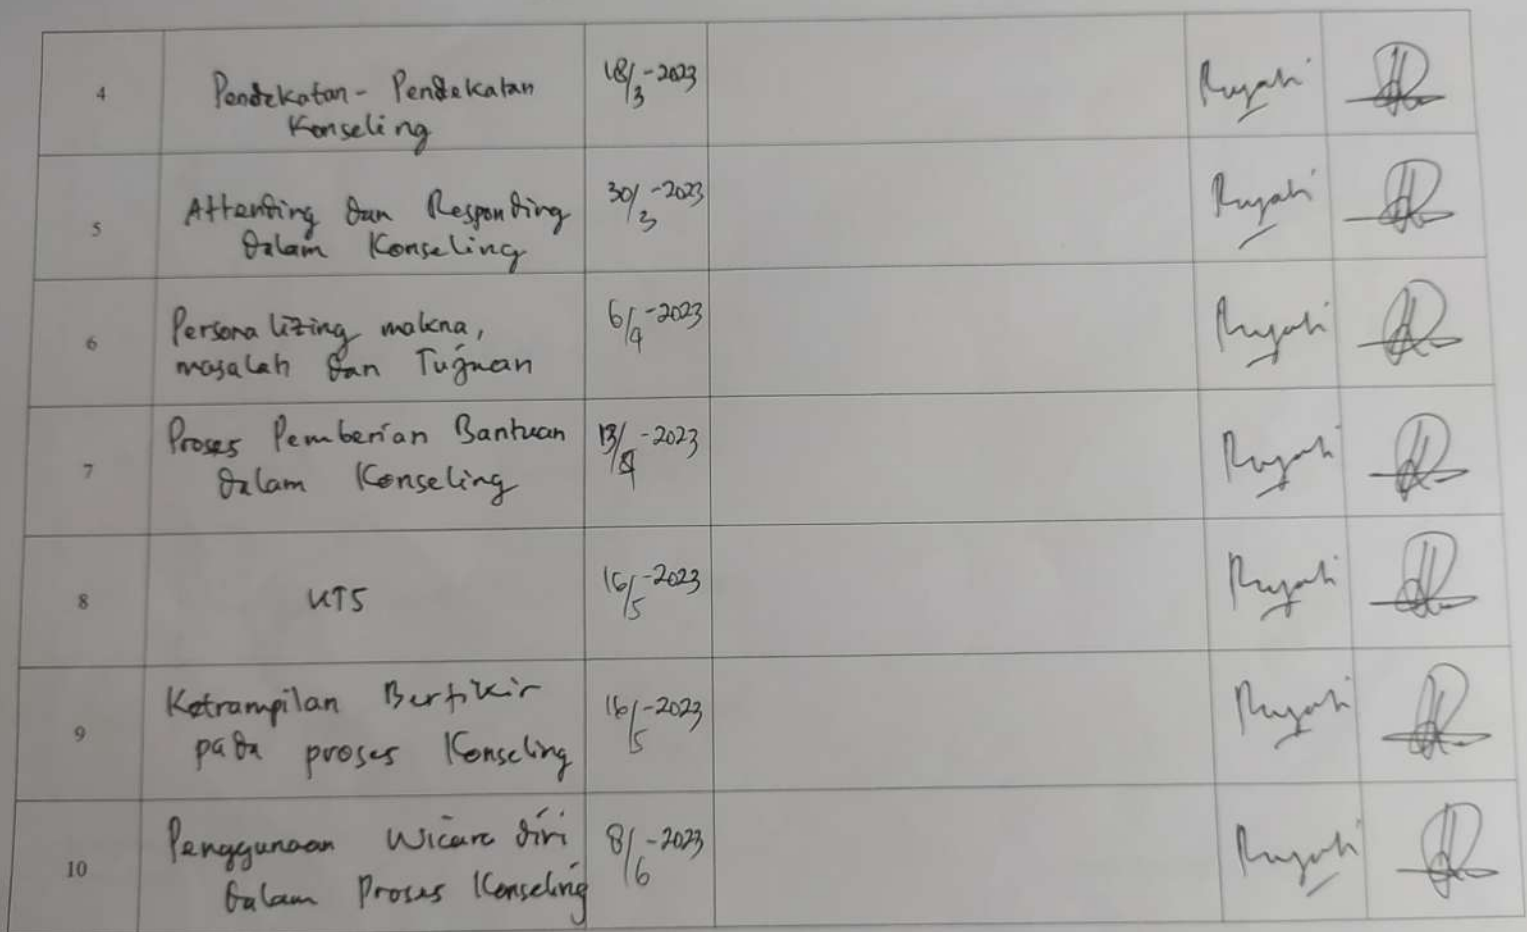 4
Pendekatan - Pendekatan
Konseling
18/3 - 2023
5
Attending dan Responding
dalam Konseling
30/3 - 2023
6
Personalizing makna,
masalah dan Tujuan
6/4 - 2023
7
Proses Pemberian Bantuan
dalam Konseling
13/4 - 2023
8
UTS
16/5 - 2023
9
Ketrampilan Berfikir
pada proses Konseling
16/5 - 2023
10
Penggunaan Wicara diri
dalam Proses Konseling
8/6 - 2023